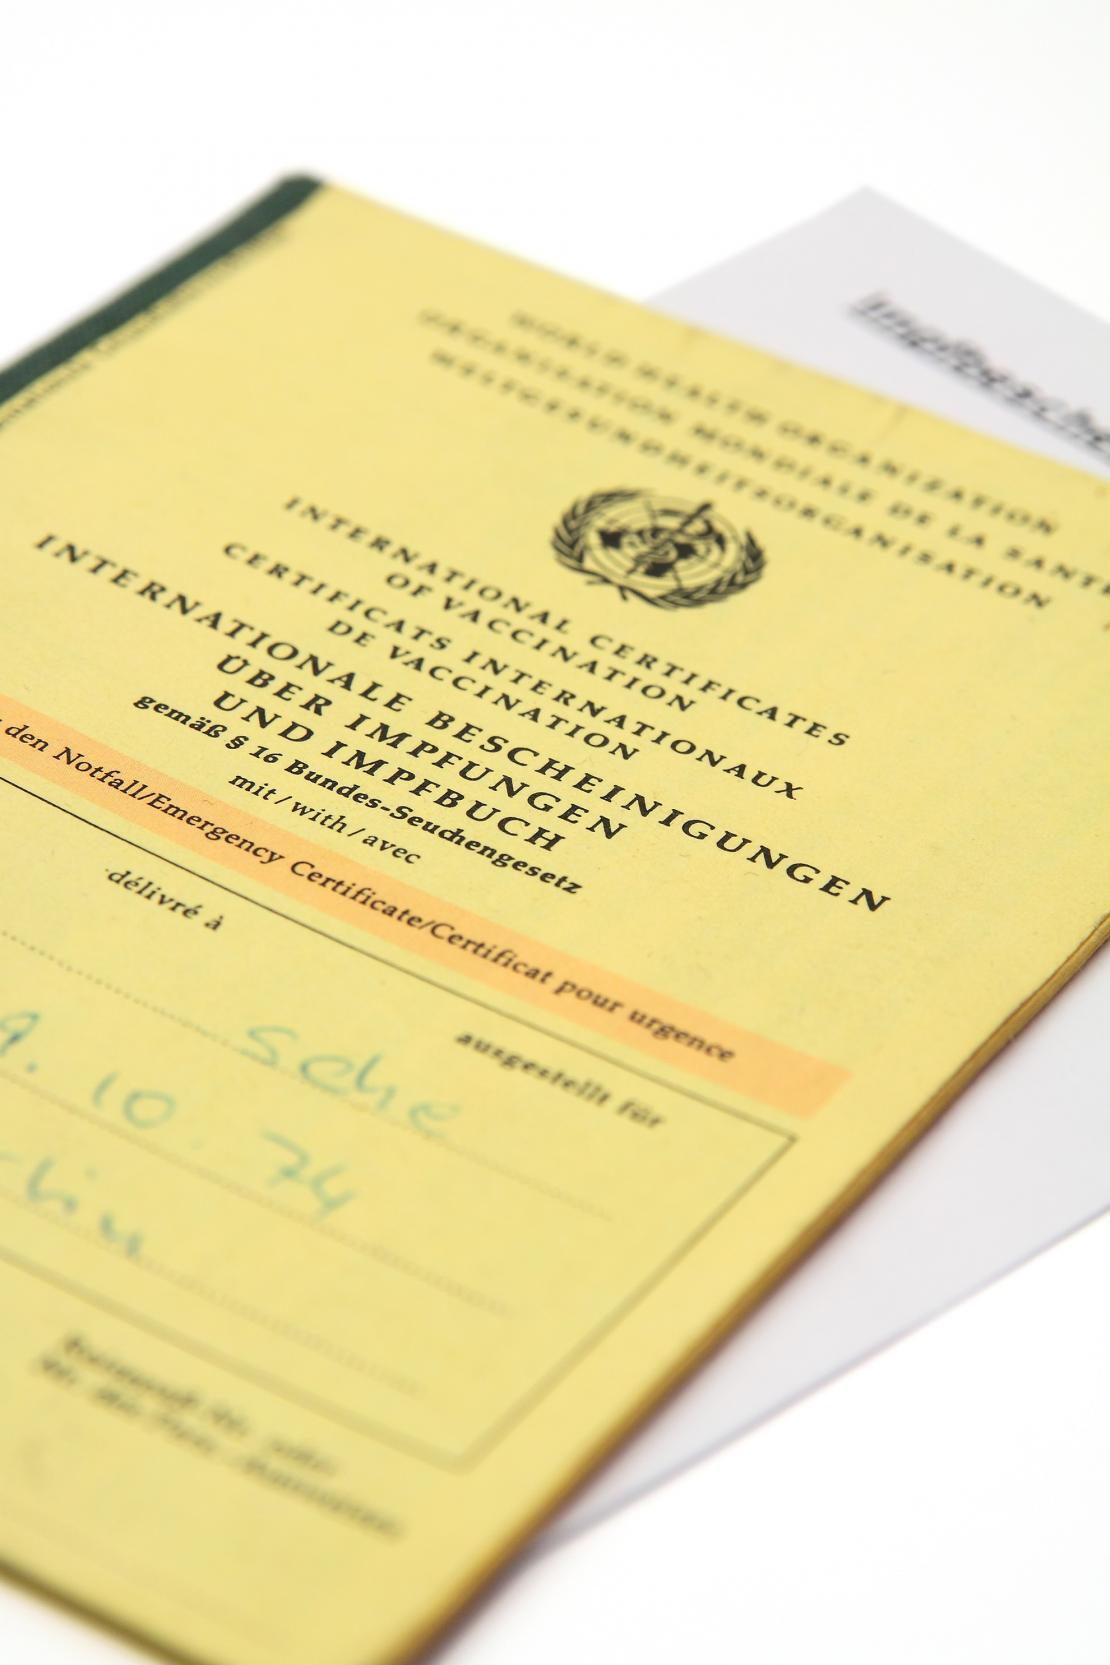 WORLD HEALTH ORGANIZATION
ORGANISATION MONDIALE DE LA SANTÉ
WELTGESUNDHEITSORGANISATION
INTERNATIONAL CERTIFICATES
OF VACCINATION
CERTIFICATS INTERNATIONAUX
DE VACCINATION
INTERNATIONALE BESCHEINIGUNGEN
ÜBER IMPFUNGEN
UND IMPFBUCH
gemäß § 16 Bundes-Seuchengesetz
mit / with / avec
den Notfall/Emergency Certificate/Certificat pour urgence
délivré à
ausgestellt für
Sche
9. 10. 74
Impfbesche